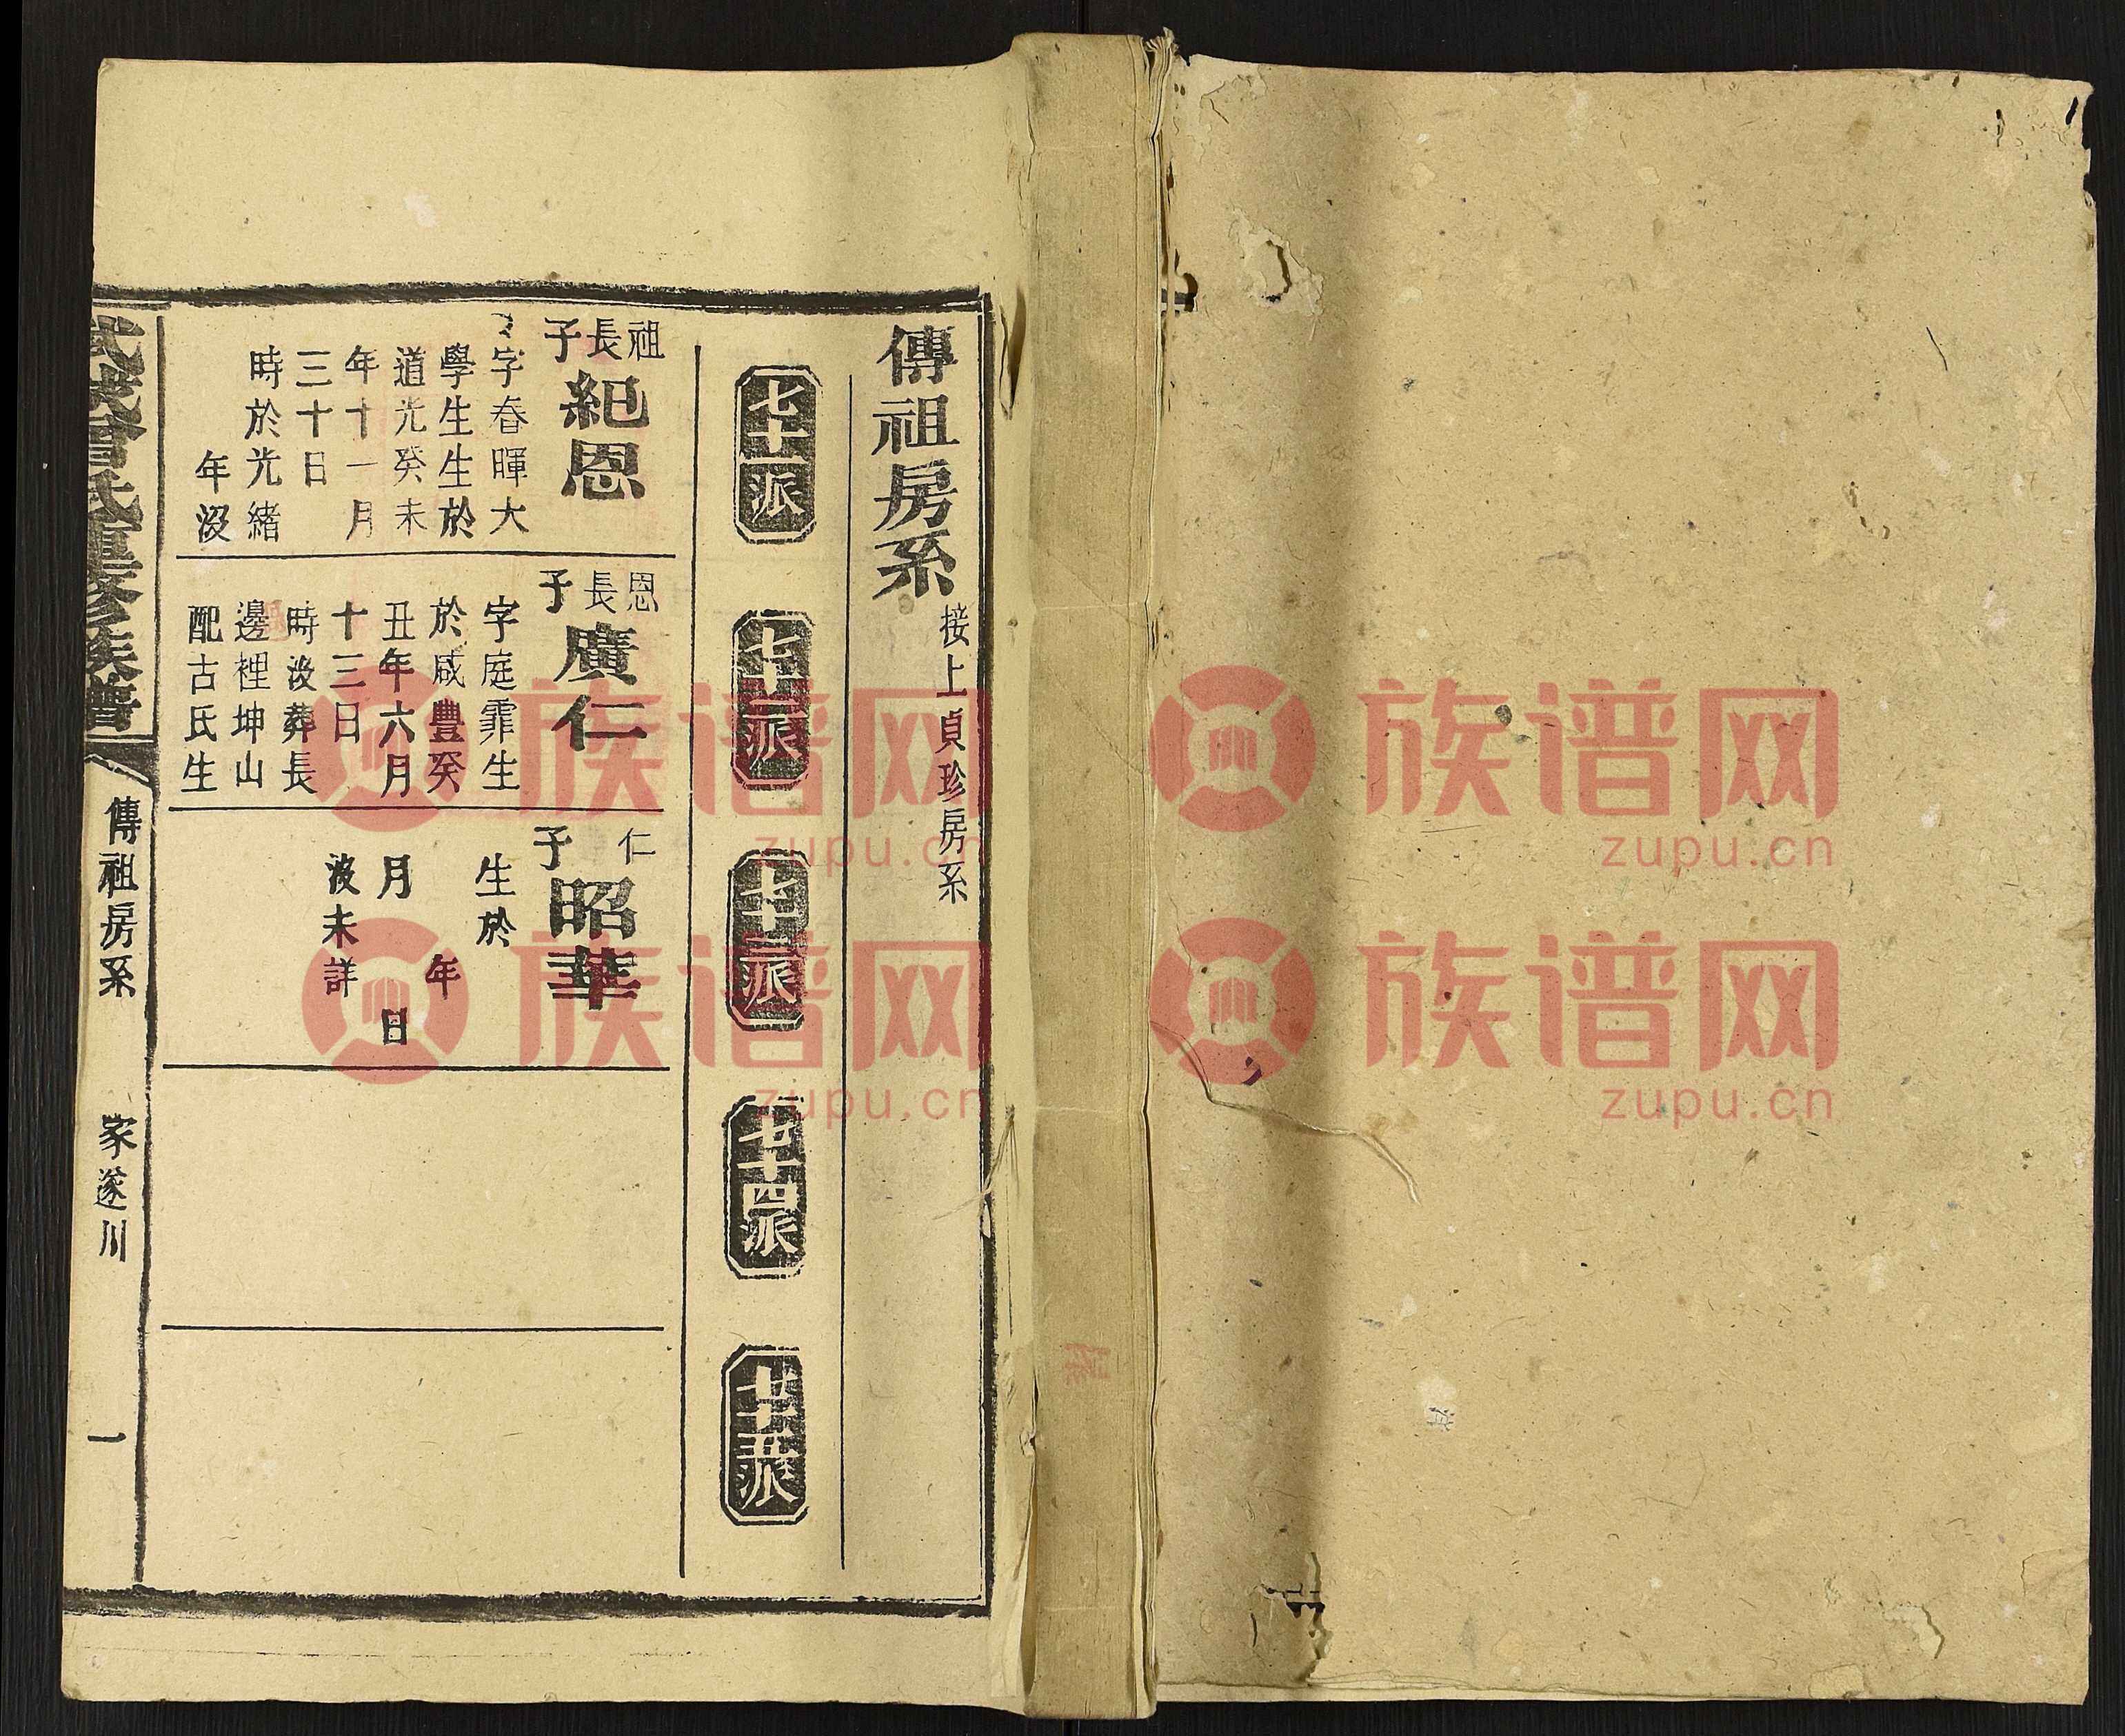 傳祖房系
接上貞珍房系
七十一派
七十二派
七十三派
七十四派
七十五派
祖長子
紀恩
字春暉大
學生生於
道光癸未
年十一月
三十日
時於光緒
年没
恩長子
廣仁
字庭霏生
於咸豐癸
丑年六月
十三日
時没葬長
邊裡坤山
配古氏生
仁子
昭華
生於
年
月日
没未詳
武城曾氏重修族譜
傳祖房系
家遂川
一
族谱网
zupu.cn
族谱网
zupu.cn
族谱网
zupu.cn
族谱网
zupu.cn